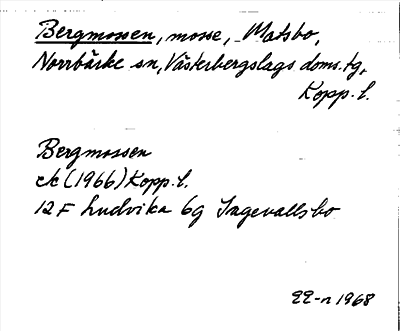 Bergmossen, mosse, Matsbo,
Norrbärke sn, Västerbergslags doms. tg,
Kopp. l.
Bergmossen
ek (1966) Kopp. l.
12 F Ludvika 6g Ingevallsbo
1968